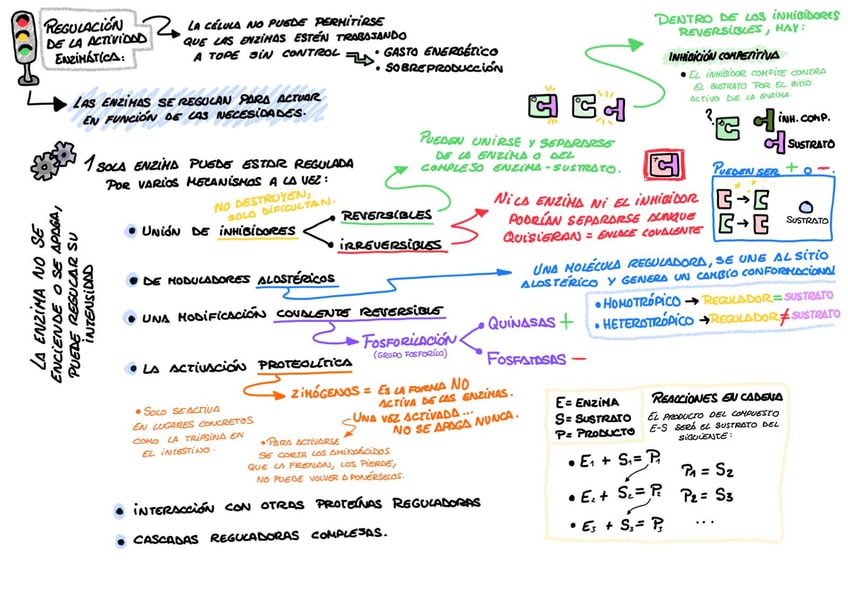 REGULACIÓN
DE LA ACTIVIDAD
ENZIMÁTICA:
LA CÉLULA NO PUEDE PERMITIRSE
QUE LAS ENZIMAS ESTÉN TRABAJANDO
A TOPE SIN CONTROL
• GASTO ENERGÉTICO
• SOBREPRODUCCIÓN
LAS ENZIMAS SE REGULAN PARA ACTUAR
EN FUNCIÓN DE LAS NECESIDADES.
DENTRO DE LOS INHIBIDORES
REVERSIBLES, HAY:
INHIBICIÓN COMPETITIVA
• EL INHIBIDOR COMPITE CONTRA
EL SUSTRATO POR EL SITIO
ACTIVO DE LA ENZIMA.
?
INH. COMP.
SUSTRATO
LA ENZIMA NO SE
ENCIENDE O SE APAGA,
PUEDE REGULAR SU
INTENSIDAD
1 SOLA ENZIMA PUEDE ESTAR REGULADA
POR VARIOS MECANISMOS A LA VEZ:
PUEDEN UNIRSE Y SEPARARSE
DE LA ENZIMA O DEL
COMPLEJO ENZIMA-SUSTRATO.
NO DESTRUYEN,
SOLO DIFICULTAN.
• UNIÓN DE INHIBIDORES
REVERSIBLES
IRREVERSIBLES
NI LA ENZIMA NI EL INHIBIDOR
PODRÍAN SEPARARSE AUNQUE
QUISIERAN = ENLACE COVALENTE
PUEDEN SER + O -.
SUSTRATO
• DE MODULADORES ALOSTÉRICOS
UNA MOLÉCULA REGULADORA, SE UNE AL SITIO
ALOSTÉRICO Y GENERA UN CAMBIO CONFORMACIONAL
• HOMOTRÓPICO → REGULADOR = SUSTRATO
• HETEROTRÓPICO → REGULADOR ≠ SUSTRATO
• UNA MODIFICACIÓN COVALENTE REVERSIBLE
FOSFORILACIÓN
(GRUPO FOSFORILO)
• QUINASAS +
• FOSFATASAS -
• LA ACTIVACIÓN PROTEOLÍTICA
ZIMÓGENOS = ES LA FORMA NO
ACTIVA DE LAS ENZIMAS.
UNA VEZ ACTIVADA ...
NO SE APAGA NUNCA.
• SOLO SE ACTIVA
EN LUGARES CONCRETOS
COMO LA TRIPSINA EN
EL INTESTINO.
• PARA ACTIVARSE
SE CORTA LOS AMINOÁCIDOS
QUE LA FRENAN, LOS PIERDE,
NO PUEDE VOLVER A PONÉRSELOS.
• INTERACCIÓN CON OTRAS PROTEÍNAS REGULADORAS
• CASCADAS REGULADORAS COMPLEJAS.
E= ENZIMA
S= SUSTRATO
P= PRODUCTO
REACCIONES EN CADENA
EL PRODUCTO DEL COMPUESTO
E-S SERÁ EL SUSTRATO DEL
SIGUIENTE:
• E₁ + S₁ = P₁
• E₂ + S₂ = P₂
• E₃ + S₃ = P₃
P₁ = S₂
P₂ = S₃
...